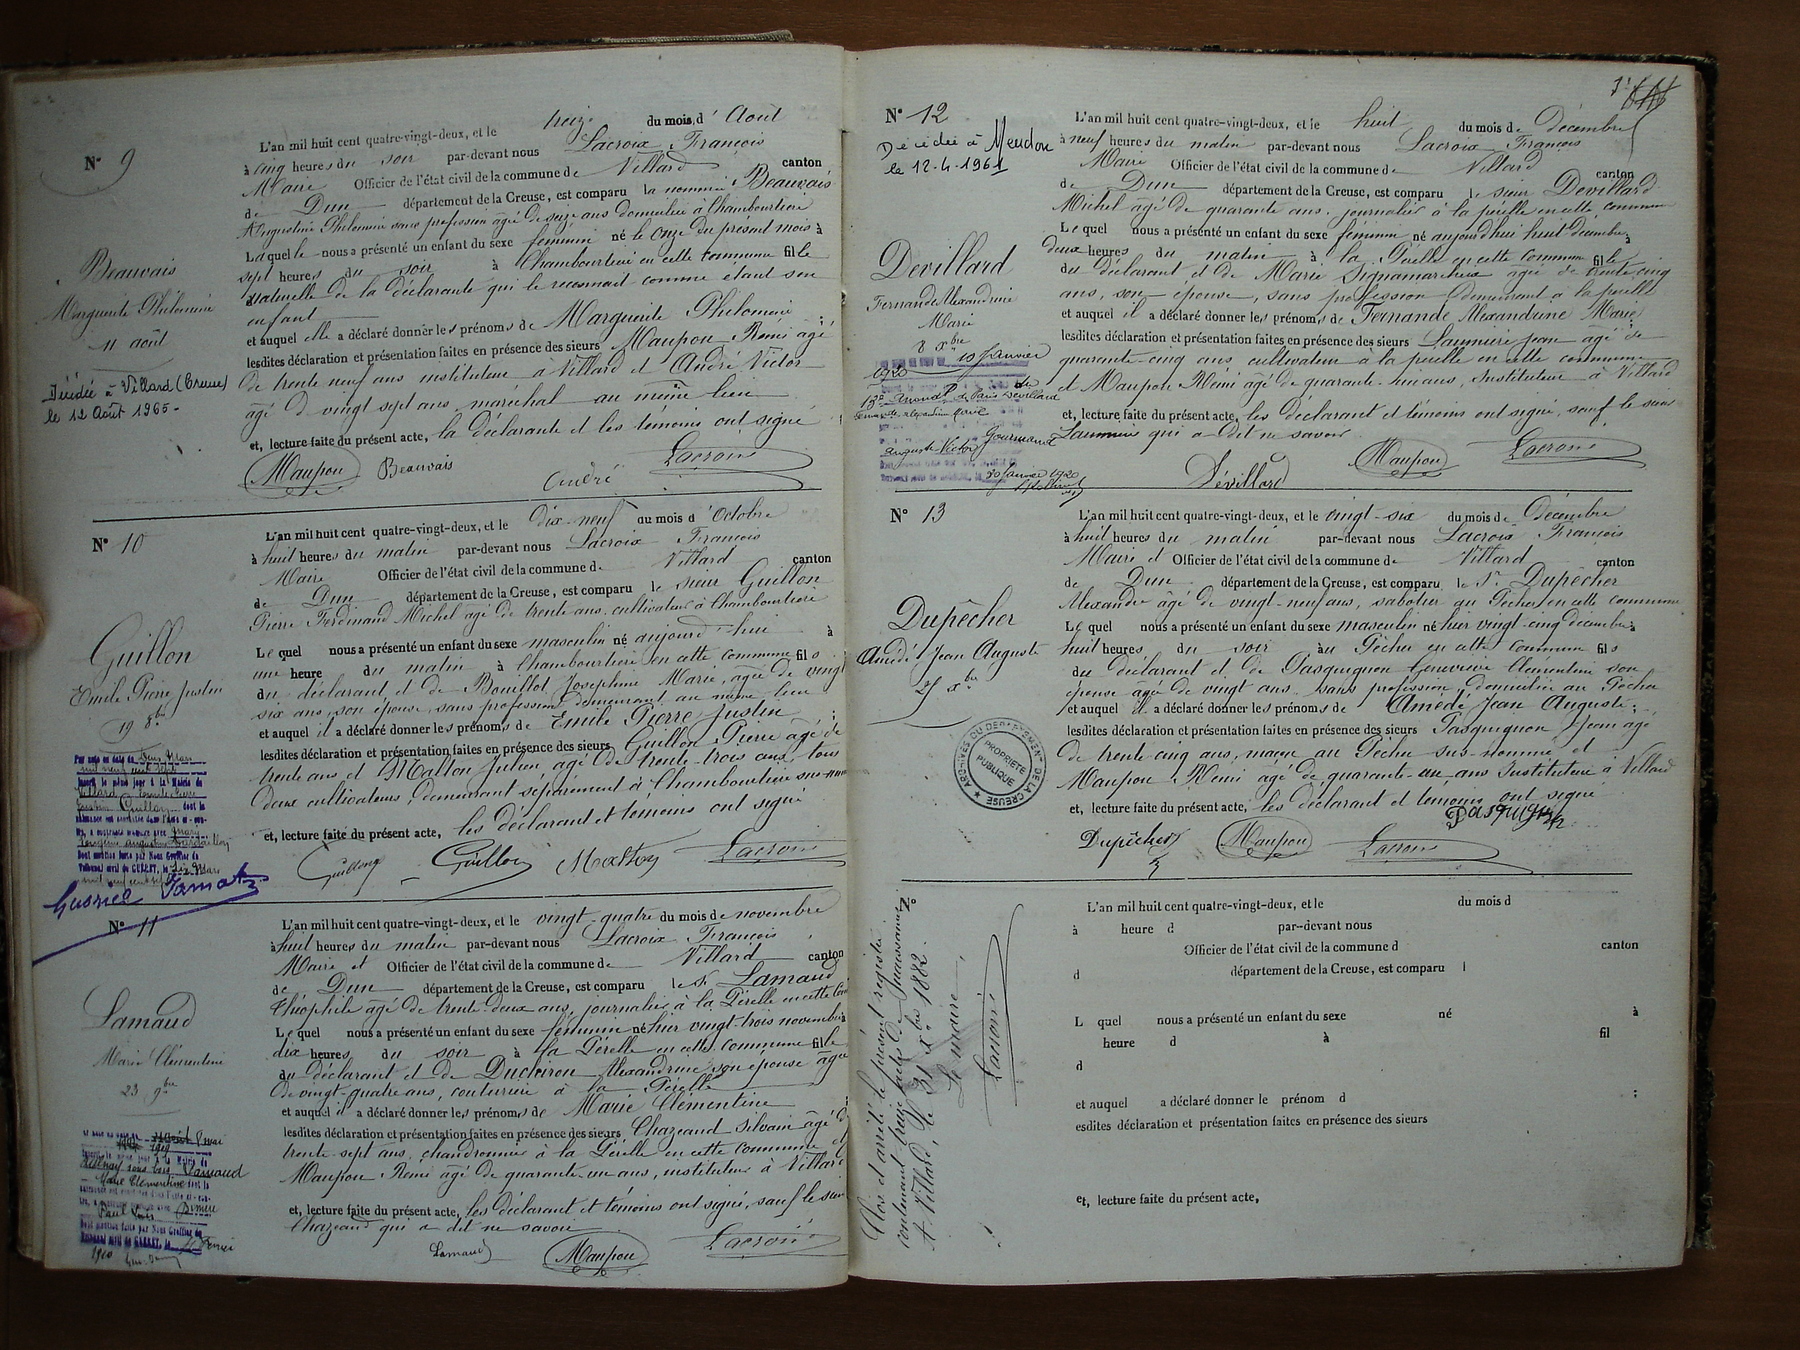 N° 9
Beauvais
Marguerite Philomène
11 août
Décédée à Villard (Creuse)
le 12 Août 1965-
L'an mil huit cent quatre-vingt-deux, et le treize du mois d'Août
à cinq heures du soir par-devant nous Lacroix François
Maire Officier de l'état civil de la commune de Villard canton
de Dun département de la Creuse, est comparu la nommée Beauvais
Augustine Philomène sans profession âgée de seize ans domiciliée à Chambourtière
Laquelle nous a présenté un enfant du sexe féminin né le onze du présent mois à
sept heures du soir à Chambourtière en cette commune fille
naturelle de la déclarante qui le reconnait comme étant son
enfant
et auquel elle a déclaré donner les prénoms de Marguerite Philomène ;
lesdites déclaration et présentation faites en présence des sieurs Maupou Rémi âgé
de trente neuf ans instituteur à Villard et André Victor
âgé d vingt sept ans, maréchal au même lieu
et, lecture faite du présent acte, la déclarante et les témoins ont signé
Maupou Beauvais André Lacroix
N° 10
Guillon
Emile Pierre Justin
19 8bre
L'an mil huit cent quatre-vingt-deux, et le dix-neuf du mois d'Octobre
à huit heures du matin par-devant nous Lacroix François
Maire Officier de l'état civil de la commune de Villard canton
de Dun département de la Creuse, est comparu le sieur Guillon
Pierre Ferdinand Michel âgé de trente ans, cultivateur à Chambourtière
Lequel nous a présenté un enfant du sexe masculin né aujourd'hui à
une heure du matin à Chambourtière en cette commune fils
du déclarant et de Bouillot Joséphine Marie, âgée de vingt
six ans, son épouse, sans profession demeurant au même lieu
et auquel il a déclaré donner les prénoms de Emile Pierre Justin ;
lesdites déclaration et présentation faites en présence des sieurs Guillon Pierre âgé de
trente ans et Malton Julien âgé de trente-trois ans, tous
deux cultivateurs, demeurant séparément à Chambourtière
et, lecture faite du présent acte, les déclarant et témoins ont signé
Guillon Guillon Malton Lacroix
N° 11
Lamaud
Marie Clémentine
23 9bre
L'an mil huit cent quatre-vingt-deux, et le vingt-quatre du mois de novembre
à huit heures du matin par-devant nous Lacroix François
Maire et Officier de l'état civil de la commune de Villard canton
de Dun département de la Creuse, est comparu le Sr Lamaud
Théophile âgé de trente-deux ans, journalier à la Pérelle en cette
Lequel nous a présenté un enfant du sexe féminin né hier vingt-trois novembre à
dix heures du soir à la Pérelle en cette commune fille
du déclarant et de Duchiron Alexandrine son épouse âgée
de vingt-quatre ans, couturière à la Pérelle
et auquel il a déclaré donner les prénoms de Marie Clémentine
lesdites déclaration et présentation faites en présence des sieurs Chazeaud Silvain âgé de
trente-sept ans, chaudronnier à la Pérelle en cette commune et
Maupou Rémi âgé de quarante-un ans, instituteur à Villard
et, lecture faite du présent acte, les déclarant et témoins ont signé, sauf le sieur
Chazeaud qui a dit ne savoir
Lamaud Maupou Lacroix
N° 12
Décédée à Meudon
le 12-4-1961
Devillard
Fernande Alexandrine
Marie
8 Xbre
L'an mil huit cent quatre-vingt-deux, et le huit du mois de Décembre
à neuf heures du matin par-devant nous Lacroix François
Maire Officier de l'état civil de la commune de Villard canton
de Dun département de la Creuse, est comparu le sieur Devillard
Michel âgé de quarante ans, journalier à la pérelle en cette commune
Lequel nous a présenté un enfant du sexe féminin né aujourd'hui huit décembre à
deux heures du matin à la Pérelle en cette commune fille
du déclarant et de Marie Signamarcheix âgée de trente-cinq
ans, son épouse, sans profession demeurant à la pérelle
et auquel il a déclaré donner les prénoms de Fernande Alexandrine Marie
lesdites déclaration et présentation faites en présence des sieurs Launière jean âgé de
quarante-cinq ans, cultivateur à la pérelle en cette commune
et Maupou Rémi âgé de quarante-un ans, Instituteur à Villard
et, lecture faite du présent acte, les déclarant et témoins ont signé, sauf le sieur
Launière qui a dit ne savoir
Dévillard Maupou Lacroix
N° 13
Dupêcher
Amédé Jean Auguste
25 Xbre
ARCHIVES DU DEPARTEMENT DE LA CREUSE
PROPRIÉTÉ
PUBLIQUE
L'an mil huit cent quatre-vingt-deux, et le vingt-six du mois de Décembre
à huit heures du matin par-devant nous Lacroix François
Maire et Officier de l'état civil de la commune de Villard canton
de Dun département de la Creuse, est comparu le Sr Dupêcher
Alexandre âgé de vingt-neuf ans, sabotier au Pêcher en cette commune
Lequel nous a présenté un enfant du sexe masculin né hier vingt-cinq décembre à
huit heures du soir au Pêcher en cette commune fils
du déclarant et de Pasquignon Geneviève Clémentine son
épouse âgée de vingt ans sans profession, domiciliée au Pêcher
et auquel il a déclaré donner les prénoms de Amédé Jean Auguste ;
lesdites déclaration et présentation faites en présence des sieurs Pasquignon Jean âgé
de trente-cinq ans, maçon au Pêcher sus-nommé et
Maupou Rémi âgé de quarante-un ans Instituteur à Villard
et, lecture faite du présent acte, les déclarant et témoins ont signé
Dupêcher Maupou Lacroix
N°
Clos et arrêté le présent registre
contenant treize actes de naissance
A Villard, le 31 Xbre 1882.
Le maire,
Lacroix
L'an mil huit cent quatre-vingt-deux, et le du mois d
à heure d par-devant nous
Officier de l'état civil de la commune d canton
d département de la Creuse, est comparu l
L quel nous a présenté un enfant du sexe né à
heure d à fil
d
et auquel a déclaré donner le prénom d ;
esdites déclaration et présentation faites en présence des sieurs
et, lecture faite du présent acte,